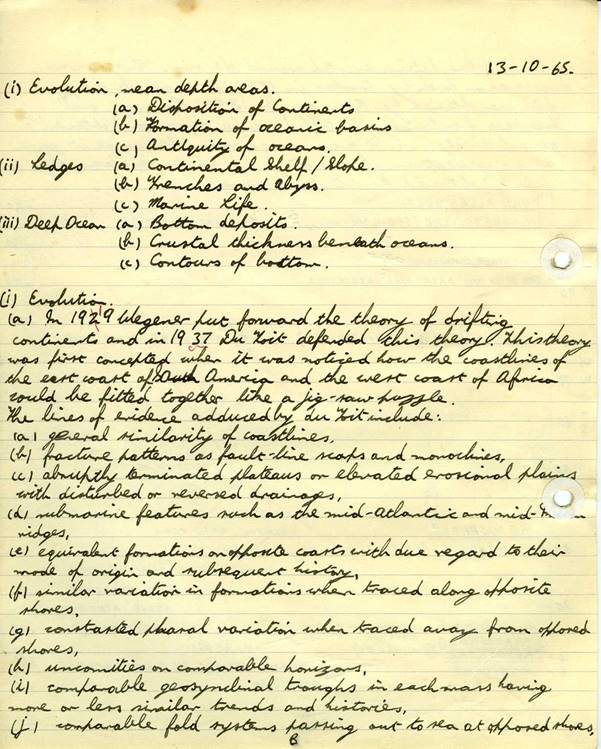 13-10-65.
(i) Evolution, mean depth areas.
(a) Disposition of Continents
(b) Formation of oceanic basins
(c) Antiquity of oceans.
(ii) Ledges (a) Continental Shelf/Slope.
(b) Trenches and Abyss.
(c) Marine Life.
(iii) Deep Ocean (a) Bottom deposits.
(b) Crustal thickness beneath oceans.
(c) Contours of bottom.
(i) Evolution.
(a) In 1929 Wegener put forward the theory of drifting
continents and in 1937 Du Toit defended this theory. This theory
was first concepted when it was noticed how the coastlines of
the east coast of South America and the west coast of Africa
could be fitted together like a jig-saw puzzle.
The lines of evidence adduced by du Toit include:
(a) general similarity of coastlines,
(b) fracture patterns as fault-line scaps and monoclines,
(c) abruptly terminated plateaus or elevated erosional plains
with disturbed or reversed drainages,
(d) submarine features such as the mid-Atlantic and mid-
ridges,
(e) equivalent formations on opposite coasts with due regard to their
mode of origin and subsequent history,
(f) similar variation in formations when traced along opposite
shores,
(g) constarted pharal variation when traced away from opposed
shores,
(h) uncomities on comparable horizons,
(i) comparable geosynclinal troughs in each mass having
more or less similar trends and histories,
(j) comparable fold systems passing out to sea at opposed shores,